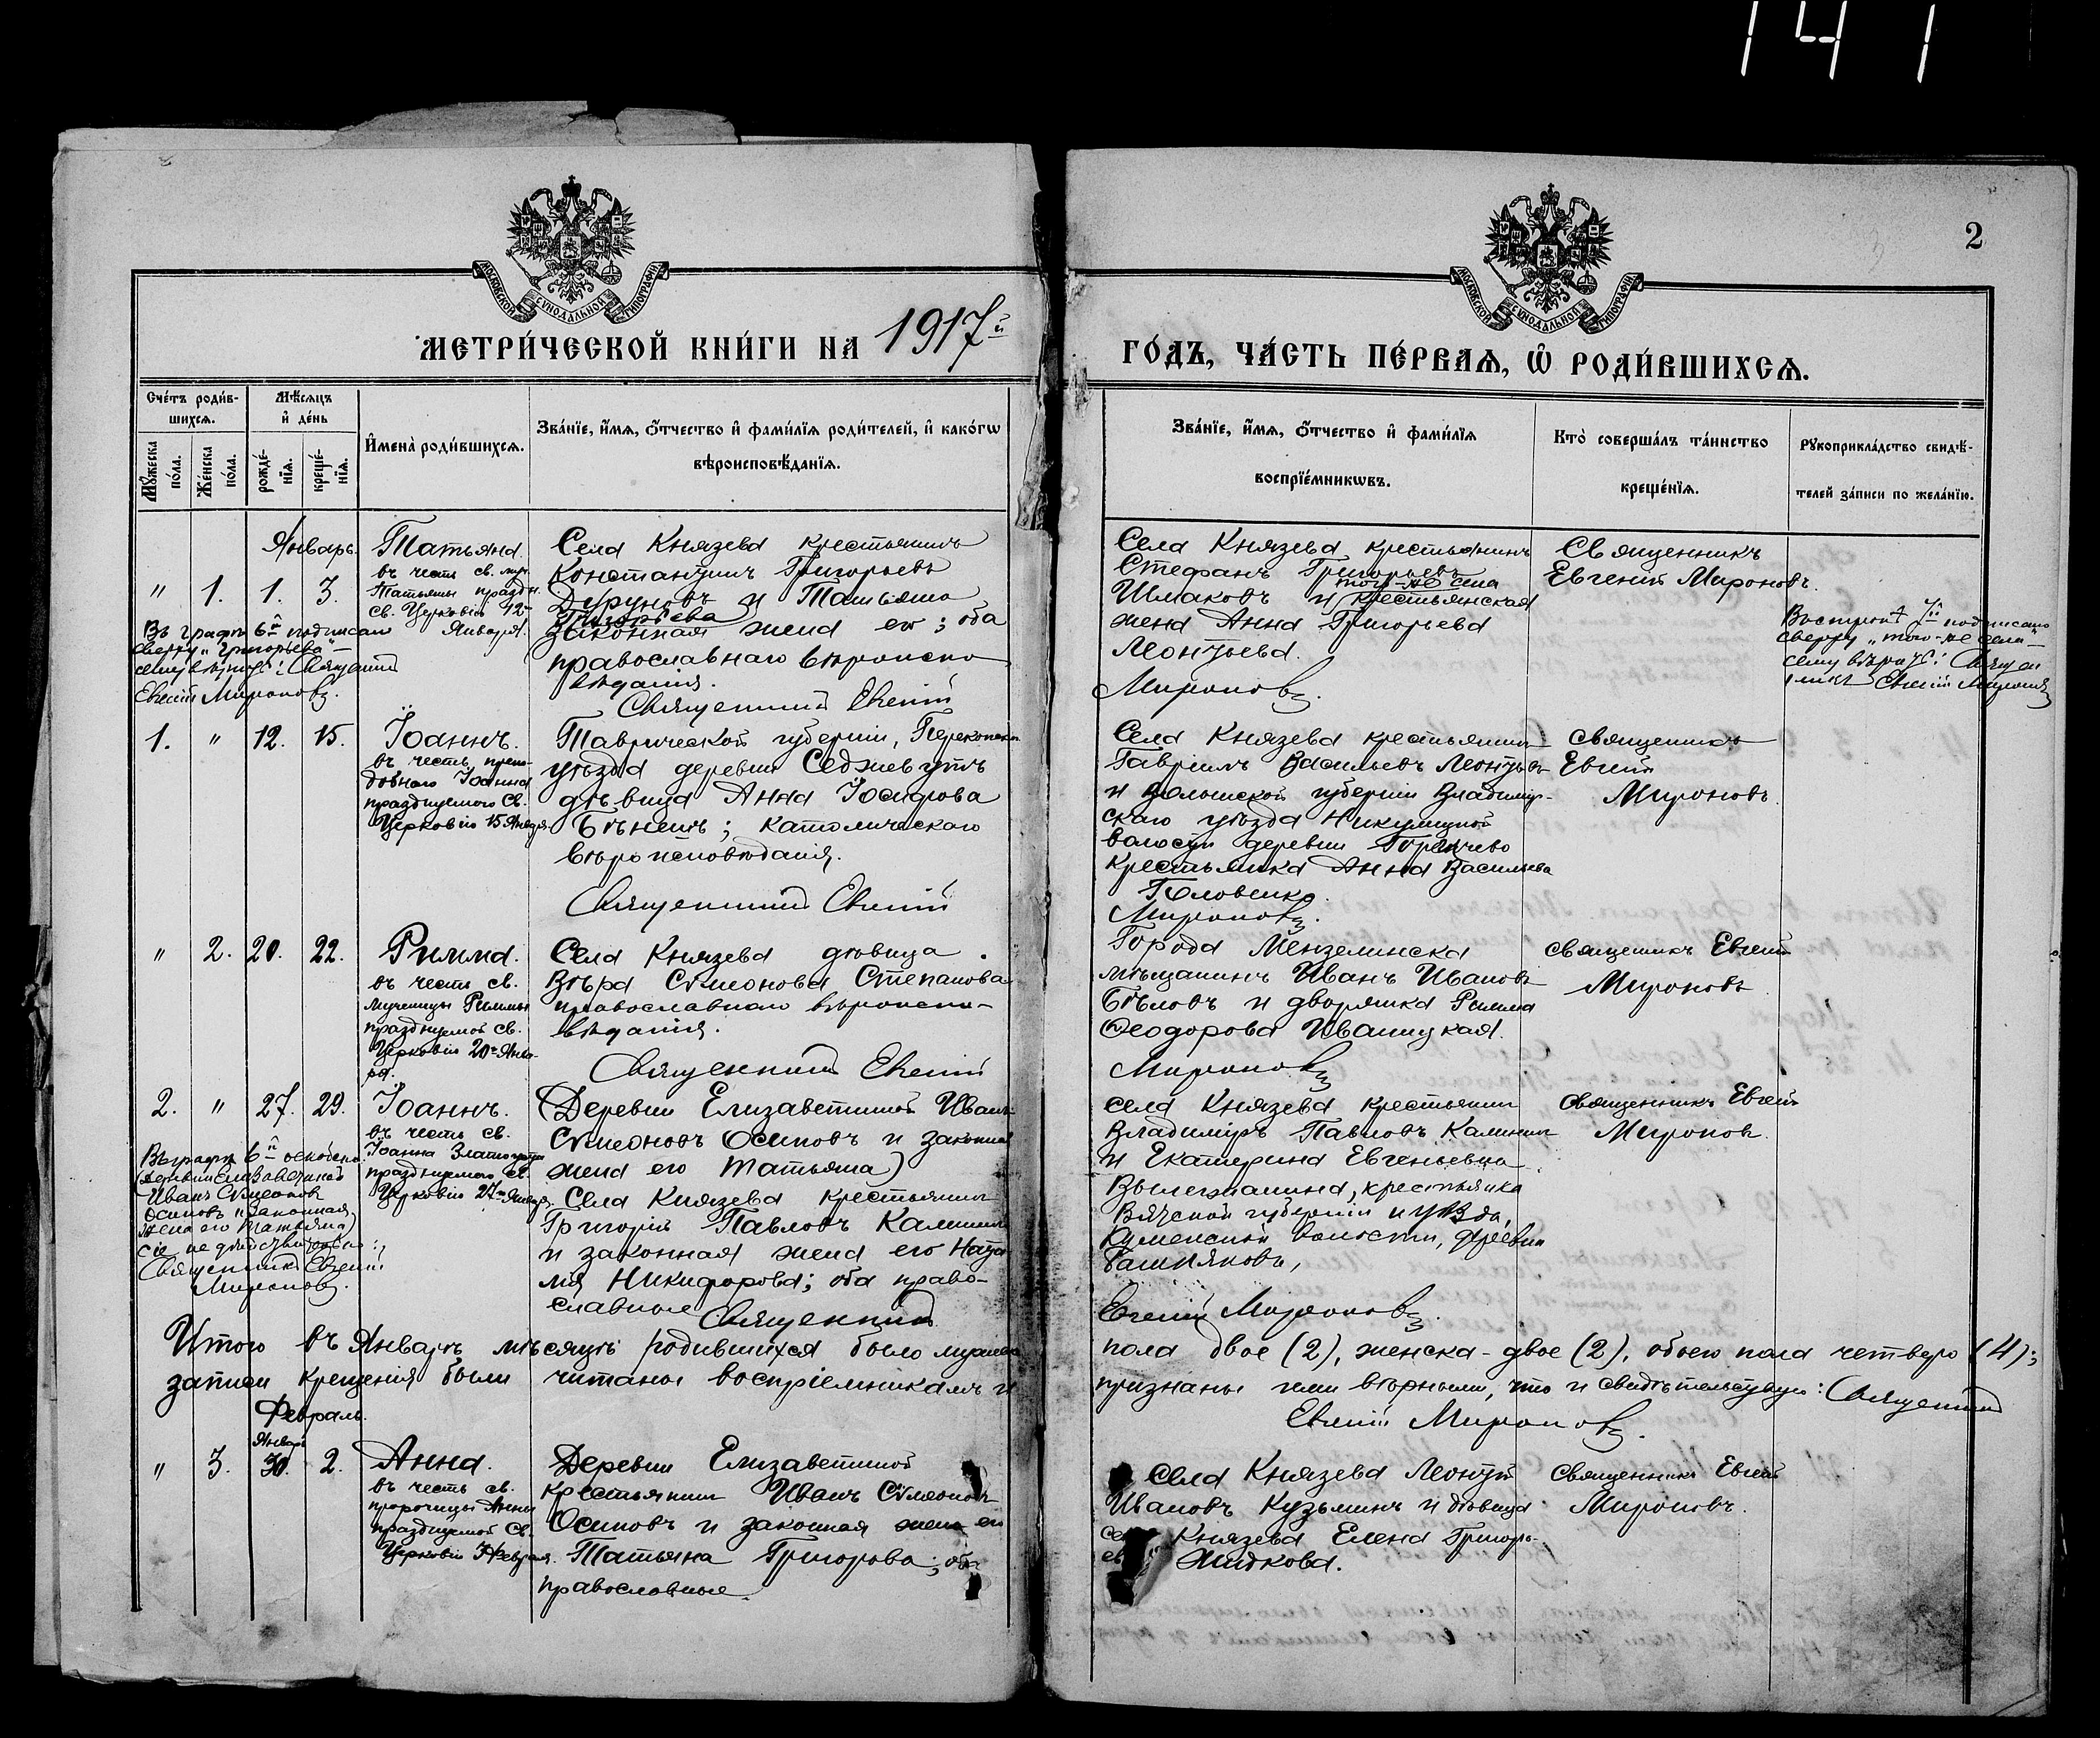 141
2
МОСКОВСКОЙ СѴНОДАЛЬНОЙ ТИПОГРАФІИ
МОСКОВСКОЙ СѴНОДАЛЬНОЙ ТИПОГРАФІИ
МЕТРИ́ЧЕСКОЙ КНИ́ГИ НА 1917й
ГО́ДЪ, ЧА́СТЬ ПЕ́РВАѦ, Ѡ҆ РОДИ́ВШИХСѦ.
Сче́тъ роди́в-
шихсѧ.
Мѣ́сѧцъ
и҆ де́нь
Мꙋ́жеска
по́ла.
Же́нска
по́ла.
рожде́-
нїѧ.
креще́-
нїѧ.
И҆мена̀ роди́вшихсѧ.
Зва́нїе, и҆́мѧ, ѻ҆́тчество и҆ фами́лїѧ роди́телей, и҆ како́гѡ
вѣроисповѣ́данїѧ.
Зва́нїе, и҆́мѧ, ѻ҆́тчество и҆ фами́лїѧ
воспрїе́мникѡвъ.
Кто̀ соверша́лъ та́инство
креще́нїѧ.
Рꙋкоприкла́дство свидѣ́-
телей за́писи по жела́нїю.
Январь.
" 1. 1. 3.
Татьяна.
въ честь св. муч.
Татьяны праздн.
св. Церковію 12го
Января.
Села Князева крестьянинъ
Константинъ Григорьевъ
Дерюновъ и Татьяна
Григорьева
законная жена его; оба
православнаго вѣроиспо-
вѣданія.
Священникъ Евгеній
Села Князева крестьянинъ
Стефанъ Григорьевъ
того-же села
Шмаковъ и крестьянская
жена Анна Григорьева
Леонтьева.
Мироновъ.
Священникъ
Евгеній Мироновъ.
Въ графѣ 6й подписано
сверху "Григорьева" –
сему вѣрить: Священникъ
Евгеній Мироновъ.
7й подписано
сверху "того-же села" –
сему вѣрить: Священ
никъ Евгеній Мироновъ
1. " 12. 15.
Іоаннъ.
въ честь препо-
добнаго Іоанна
празднуемаго св.
Церковію 15 Января
Таврической губерніи, Перекопскаго
уѣзда деревни
дѣвица Анна Іосифова
католическаго
вѣроисповѣданія.
Священникъ Евгеній
Села Князева крестьянинъ
Гавріилъ Васильевъ Леонтьевъ
и Волынской губерніи Владимір-
скаго уѣзда
волости деревни
крестьянка Анна Васильева
Мироновъ.
священникъ
Евгеній
Мироновъ.
" 2. 20. 22.
Римма.
въ честь св.
мученицы Риммы
празднуемой св.
Церковію 20го Янва-
ря.
Села Князева дѣвица
Вѣра Сѵмеонова Степанова
православнаго вѣроиспо-
вѣданія.
Священникъ Евгеній
Города Мензелинска
мѣщанинъ Иванъ Ивановъ
Бѣловъ и дворянка Римма
Ѳеодорова Иваницкая.
Мироновъ
священникъ Евгеній
Мироновъ
2. " 27. 29.
Іоаннъ.
въ честь св.
Іоанна Златоуста
празднуемаго св.
Церковію 27го Января
(Деревни Елизаветиной Иванъ
Сѵмеоновъ Осиповъ и законная
жена его Татьяна)
Села Князева крестьянинъ
Григорій Павловъ Калининъ
и законная жена его Ната
лія Никифорова; оба право-
славные
Священникъ
села Князева крестьянинъ
Владиміръ Павловъ Калининъ
и Екатерина Евгеньевна
крестьянка
Вятской губерніи и уѣзда,
волости, деревни
Евгеній Мироновъ.
священникъ Евгеній
Мироновъ.
Въ графѣ 6й
(деревни Елизаветиной
Иванъ Сѵмеоновъ
Осиповъ и законная
жена его Татьяна)
сіе не дѣйствительно:
Священникъ Евгеній
Мироновъ.
Итого въ Январѣ мѣсяцѣ родившихся было мужеска
пола двое (2), женска - двое (2), обоего пола четверо (4);
записи крещенія были читаны воспріемникамъ и
признаны ими вѣрными, что и свидѣтельствую: Священникъ
Евгеній Мироновъ.
Февраль.
Январь
" 3. 30. 2.
Анна.
въ честь св.
пророчицы Анны
празднуемой св.
Церковію 3 Февраля.
Деревни Елизаветиной
крестьянинъ Иванъ Сѵмеоновъ
Осиповъ и законная жена его
Татьяна Григорова; оба
православные
села Князева Леонтій
Ивановъ Кузьминъ и дѣвица
Князева Елена Григорь-
Жидкова.
священникъ Евгеній
Мироновъ.